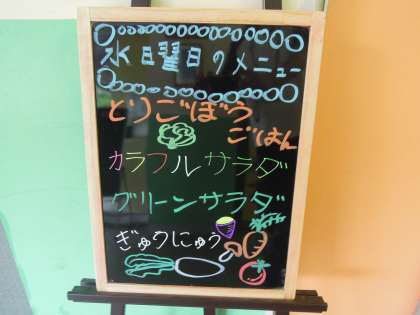 水曜日のメニュー
とりごぼう
ごはん
カラフルサラダ
グリーンサラダ
ぎゅうにゅう